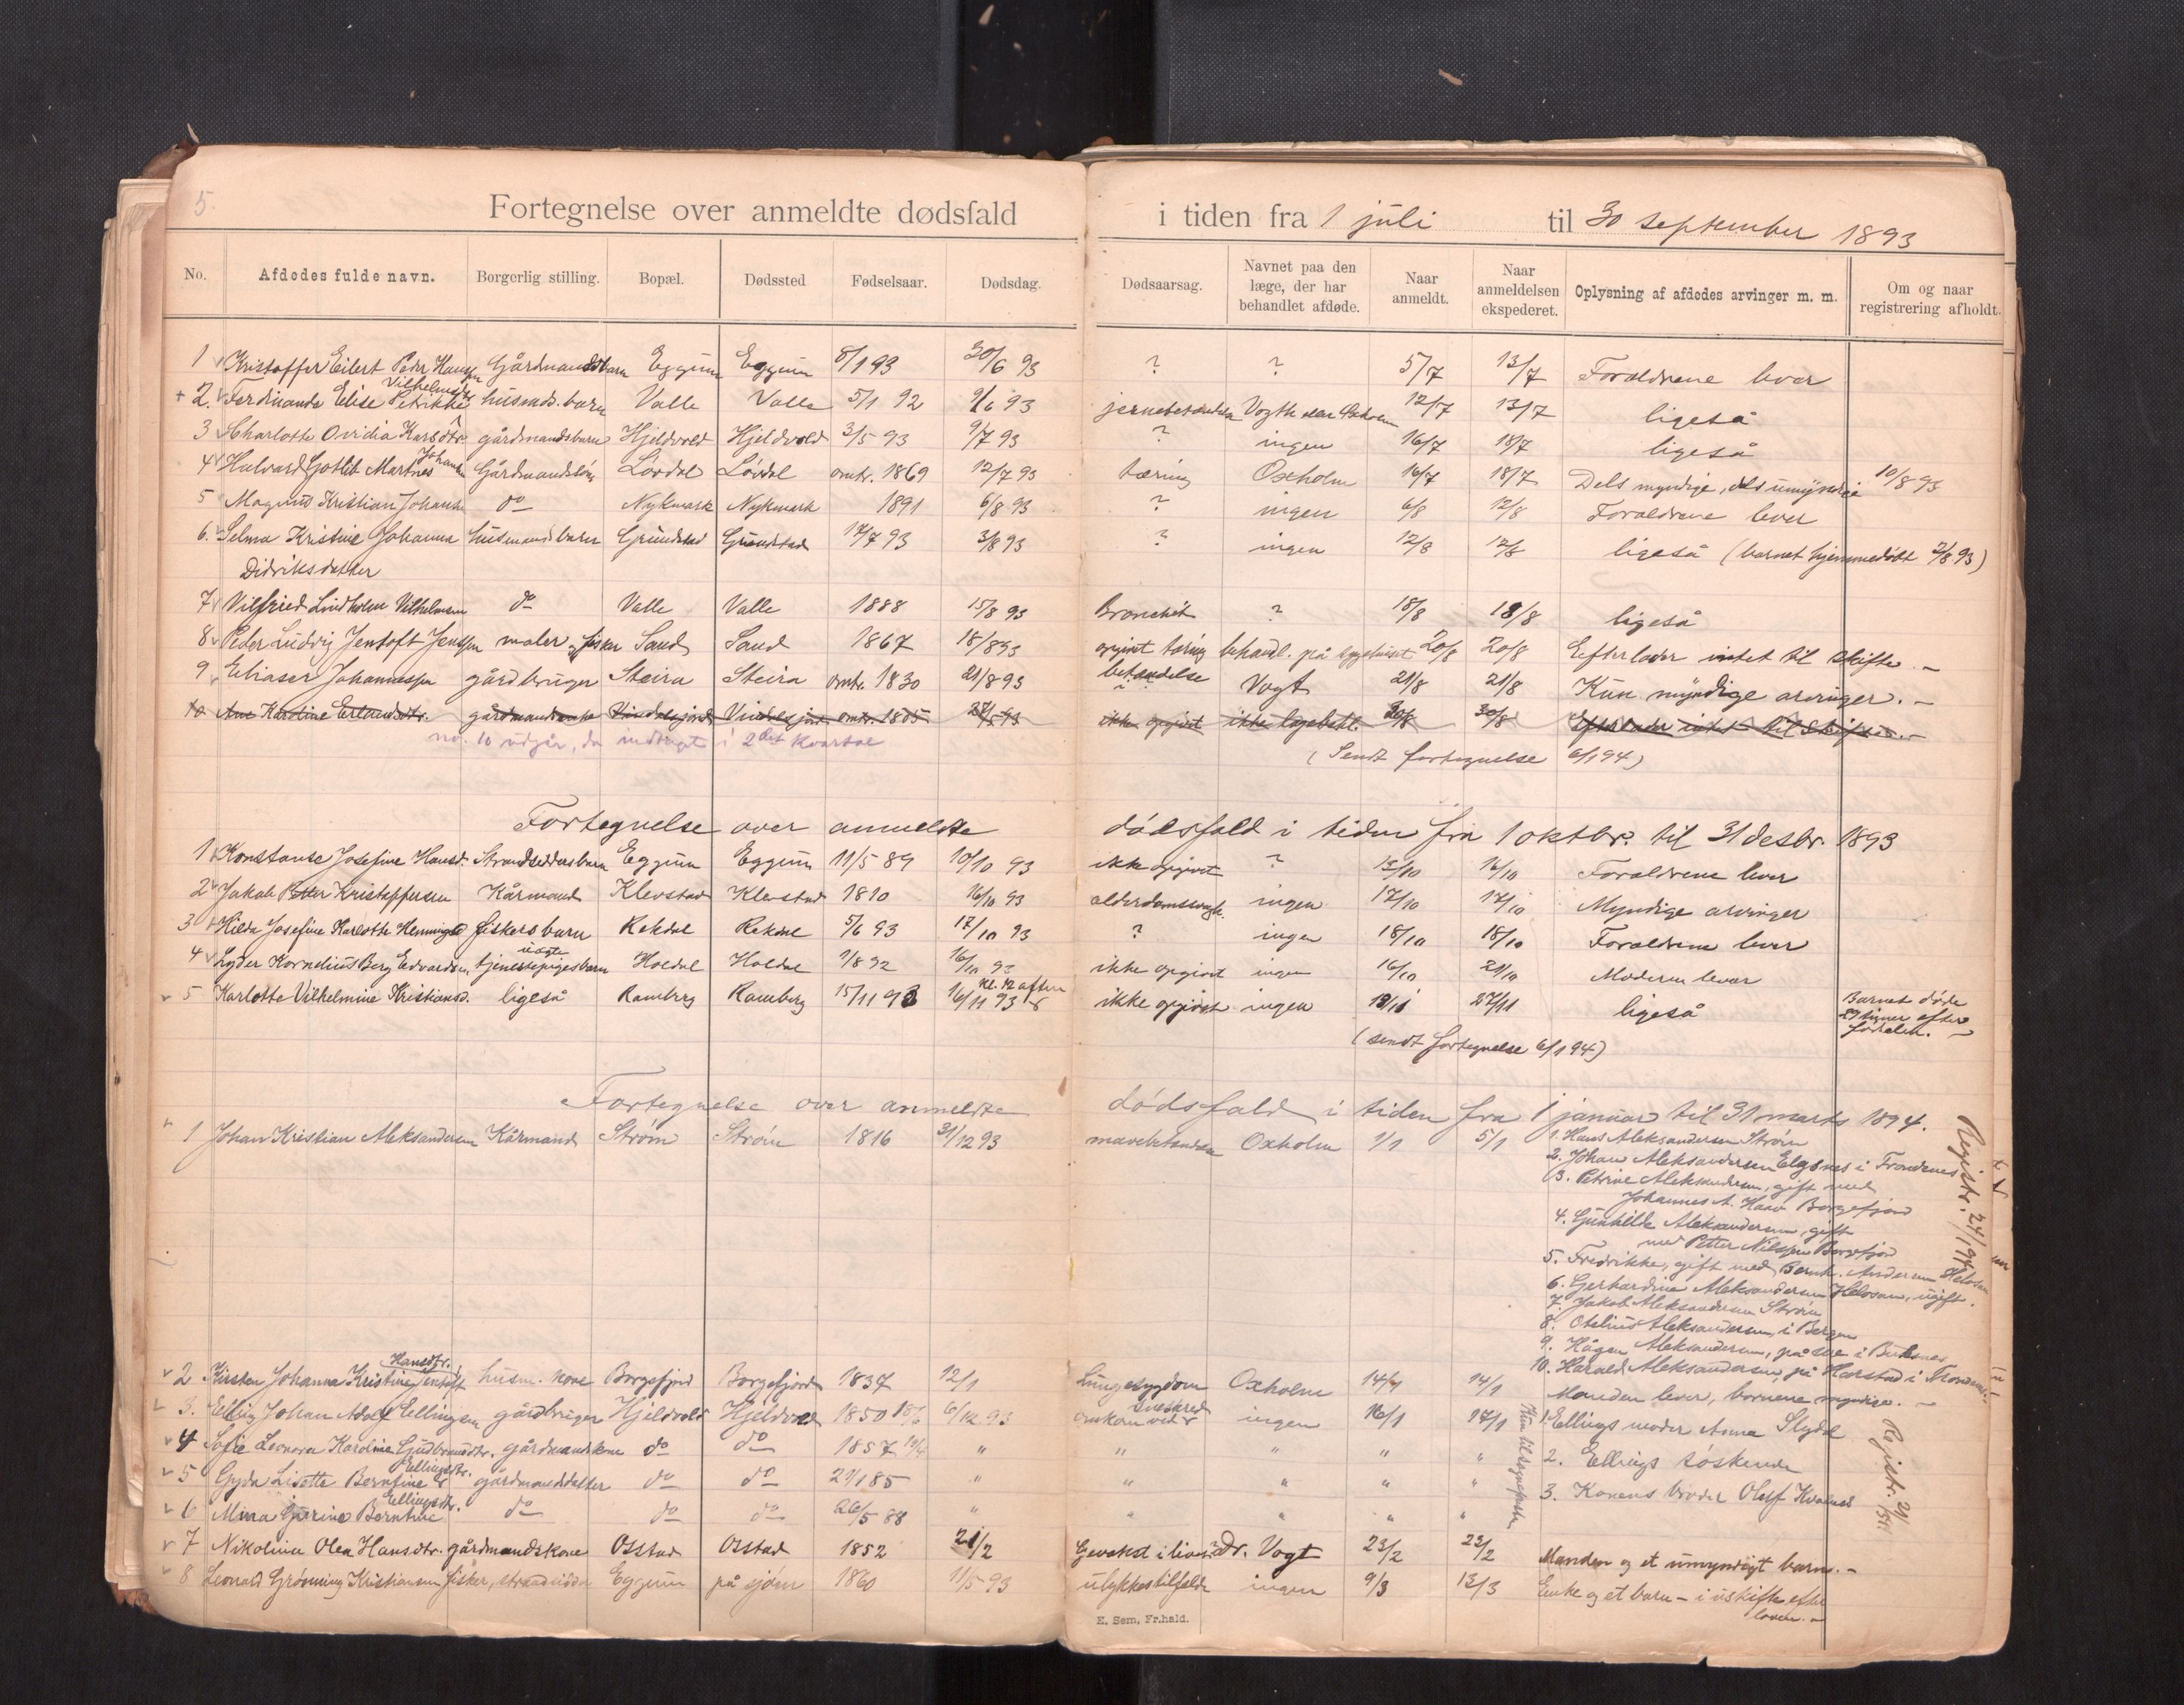 5.
Fortegnelse over anmeldte dødsfald i tiden fra 1 juli til 30 september 1893
No. Afdødes fulde navn. Borgerlig stilling. Bopæl. Dødssted Fødselsaar. Dødsdag. Dødsaarsag. Navnet paa den læge, der har behandlet afdøde. Naar anmeldt. Naar anmeldelsen ekspederet. Oplysning af afdødes arvinger m. m. Om og naar registrering afholdt.
1 Kristoffer Eilert Peder Hansen Gårdmandsbarn Eggum Eggum 8/1 93 30/6 93 ? ? 5/7 13/7 Forældrene lever
+ 2. Ferdinanda Elise Petrikke Vilhelmsdtr husmds. barn Valle Valle 5/1 92 9/6 93 Vogth 12/7 13/7 ligeså
3 Charlotte Ovidia Karsdtr. gårdmandsbarn Hjeldvold Hjeldvold 3/5 93 9/7 93 ? ingen 16/7 18/7 ligeså
4 Halvard Gotlib Martnes Johansen Gårdmandssøn Løvdal Løvdal omtr. 1869 12/7 93 tæring Oxholm 16/7 18/7 Dels myndige, dels umyndige 10/8 93
5 Magnus Kristian Johans do Nykmark Nykmark 1891 6/8 93 ? ingen 6/8 12/8 Forældrene lever
6. Selma Kristine Johanna husmandsbarn Grundstad Grundstad 17/7 93 3/8 93 ? ingen 12/8 12/8 ligeså (barnet hjemmedøbt 2/8 93)
Didriksdatter
7 Vilfried Lindholm Vilhelmsen do Valle Valle 1888 15/8 93 Bronchit ? 18/8 18/8 ligeså
8 Peder Ludvig Jentoft Jenssen maler og fisker Sand Sand 1867 18/8 93 opgivet tæring behandl. på sygehuset 20/8 20/8 Efterlader intet til skifte. -
9 Eliaser Johannessen gårdbruger Steira Steira omtr. 1830 21/8 93 betændelse Vogt 21/8 21/8 Kun myndige arvinger. -
10 Ane Karoline Erlandsdtr. gårdmandsenke Vindelsjord Vindelsjord omtr. 1805 ikke opgivet ikke lægebeh. 30/8 30/8 Efterlader intet til skifte. -
no. 10 udgår, da indtagt i 2det kvartal
(Sendt fortegnelse 6/1 94)
Fortegnelse over anmeldte dødsfald i tiden fra 1 oktbr. til 31 desbr. 1893
1 Konstanse Josefine Hansd. Strandsiddersbarn Eggum Eggum 11/5 89 10/10 93 ikke opgivet ? 15/10 16/10 Forældrene lever
2 Jakob Petter Kristoffersen Kårmand Klevstad Klevstad 1810 16/10 93 alderdomssvagh. ingen 17/10 17/10 Myndige arvinger
3 Hilda Josefine Karlotte Henningsd fiskers barn Rekdal Rekdal 5/6 93 17/10 93 ? ingen 18/10 18/10 Forældrene lever
4 Lyder Kornelius Berg Edvardsen. ugifte tjenestepigesbarn Holdal Holdal 1/8 92 16/10 93 ikke opgivet ingen 16/10 21/10 Moderen lever
5 Karlotte Vilhelmine Kristiansd. ligeså Ramberg Ramberg 15/11 93 16/11 93 kl. 12 aften ikke opgivet ingen 18/11 27/11 ligeså Barnet døde 29 timer efter fødselen. -
(sendt fortegnelse 6/1 94)
Fortegnelse over anmeldte dødsfald i tiden fra 1 januar til 31 marts 1894.
1 Johan Kristian Aleksandersen Kårmand Strøm Strøm 1816 31/12 93 Oxholm 1/1 5/1 1. Hans Aleksandersen Strøm
2. Johan Aleksandersen Elgsnes i Trondenes
3. Petrine Aleksandersen, gift med
Johannes A. Haav Borgefjord
4. Gunhilde Aleksandersen, gift
med Petter Nilssen Borgefjord
5. Fredrikke, gift med Bernh. Andersen Helosan
6. Gerhardine Aleksandersen Helosan, ugift.
7. Jakob Aleksandersen Strøm
8. Otelius Aleksandersen, i Bergen
9. Hågen Aleksandersen, i Buksnes
10. Harald Aleksandersen, på Harstad i Trondenes
Registr. 24/1 94
2 Kirsten Johanna Kristine Jentoft Hansdtr. husm. kone Borgefjord Borgefjord 1837 12/1 Lungesygdom Oxholm 14/1 14/1 Manden lever, børnene myndige. -
3. Elling Johan Adolf Ellingsen gårdbruger Hjeldvold Hjeldvold 1850 6/12 93 omkom ved sneskred ingen 16/1 17/1 1. Ellings moder Anna Slydal
4 Sofie Leonora Karoline Gudbrandsdtr. gårdmandskone do do 1857 " " " " " 2. Ellings søskende
5 Gyda Lisette Berntine Ellingsdtr. gårdmandsdatter do do 21/1 85 " " " " " 3. Konens broder Oluf Kvalnes
6 Mina Gurine Berntine Ellingsdtr. do do do 26/5 88 " " " " "
Registr. 29/1
7 Nikoline Olea Hansdtr. gårdmandskone Osstad Osstad 1852 21/2 dr. Vogt 23/2 23/2 Manden og et umyndigt barn. -
8 Leonard Grønning Kristiansen fisker, strandsidder Eggum på sjøen 1860 11/5 93 ulykkestilfælde ingen 9/3 13/3 Enke og et barn - i uskifte efter
loven. -
E. Sem, Fr.hald.